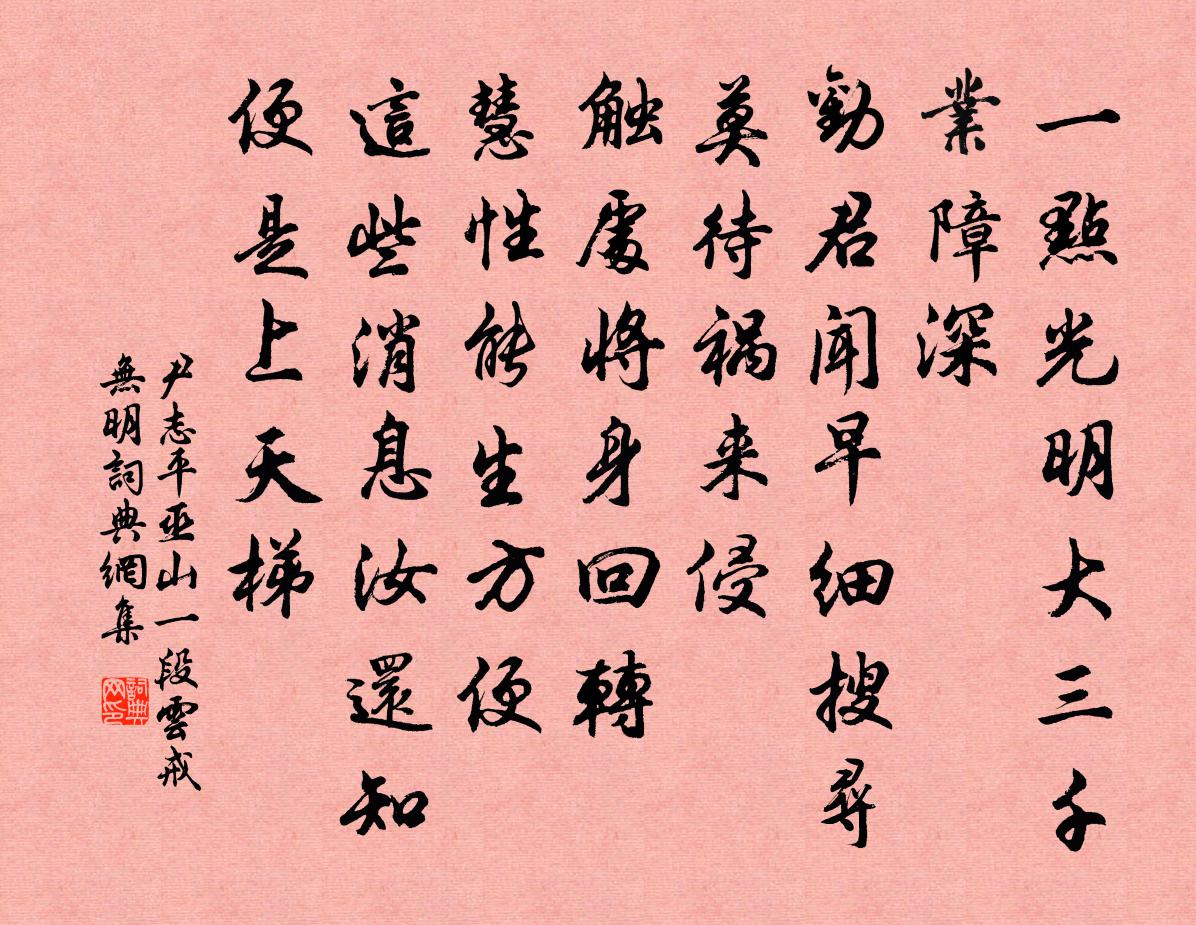 一點光明大三千
業障深
勸君聞早細搜尋
莫待禍来侵
触處將身回轉
慧性能生方便
這些消息汝還知
便是上天梯
尹志平巫山一段雲戒
無明詞典網集
詞典网印